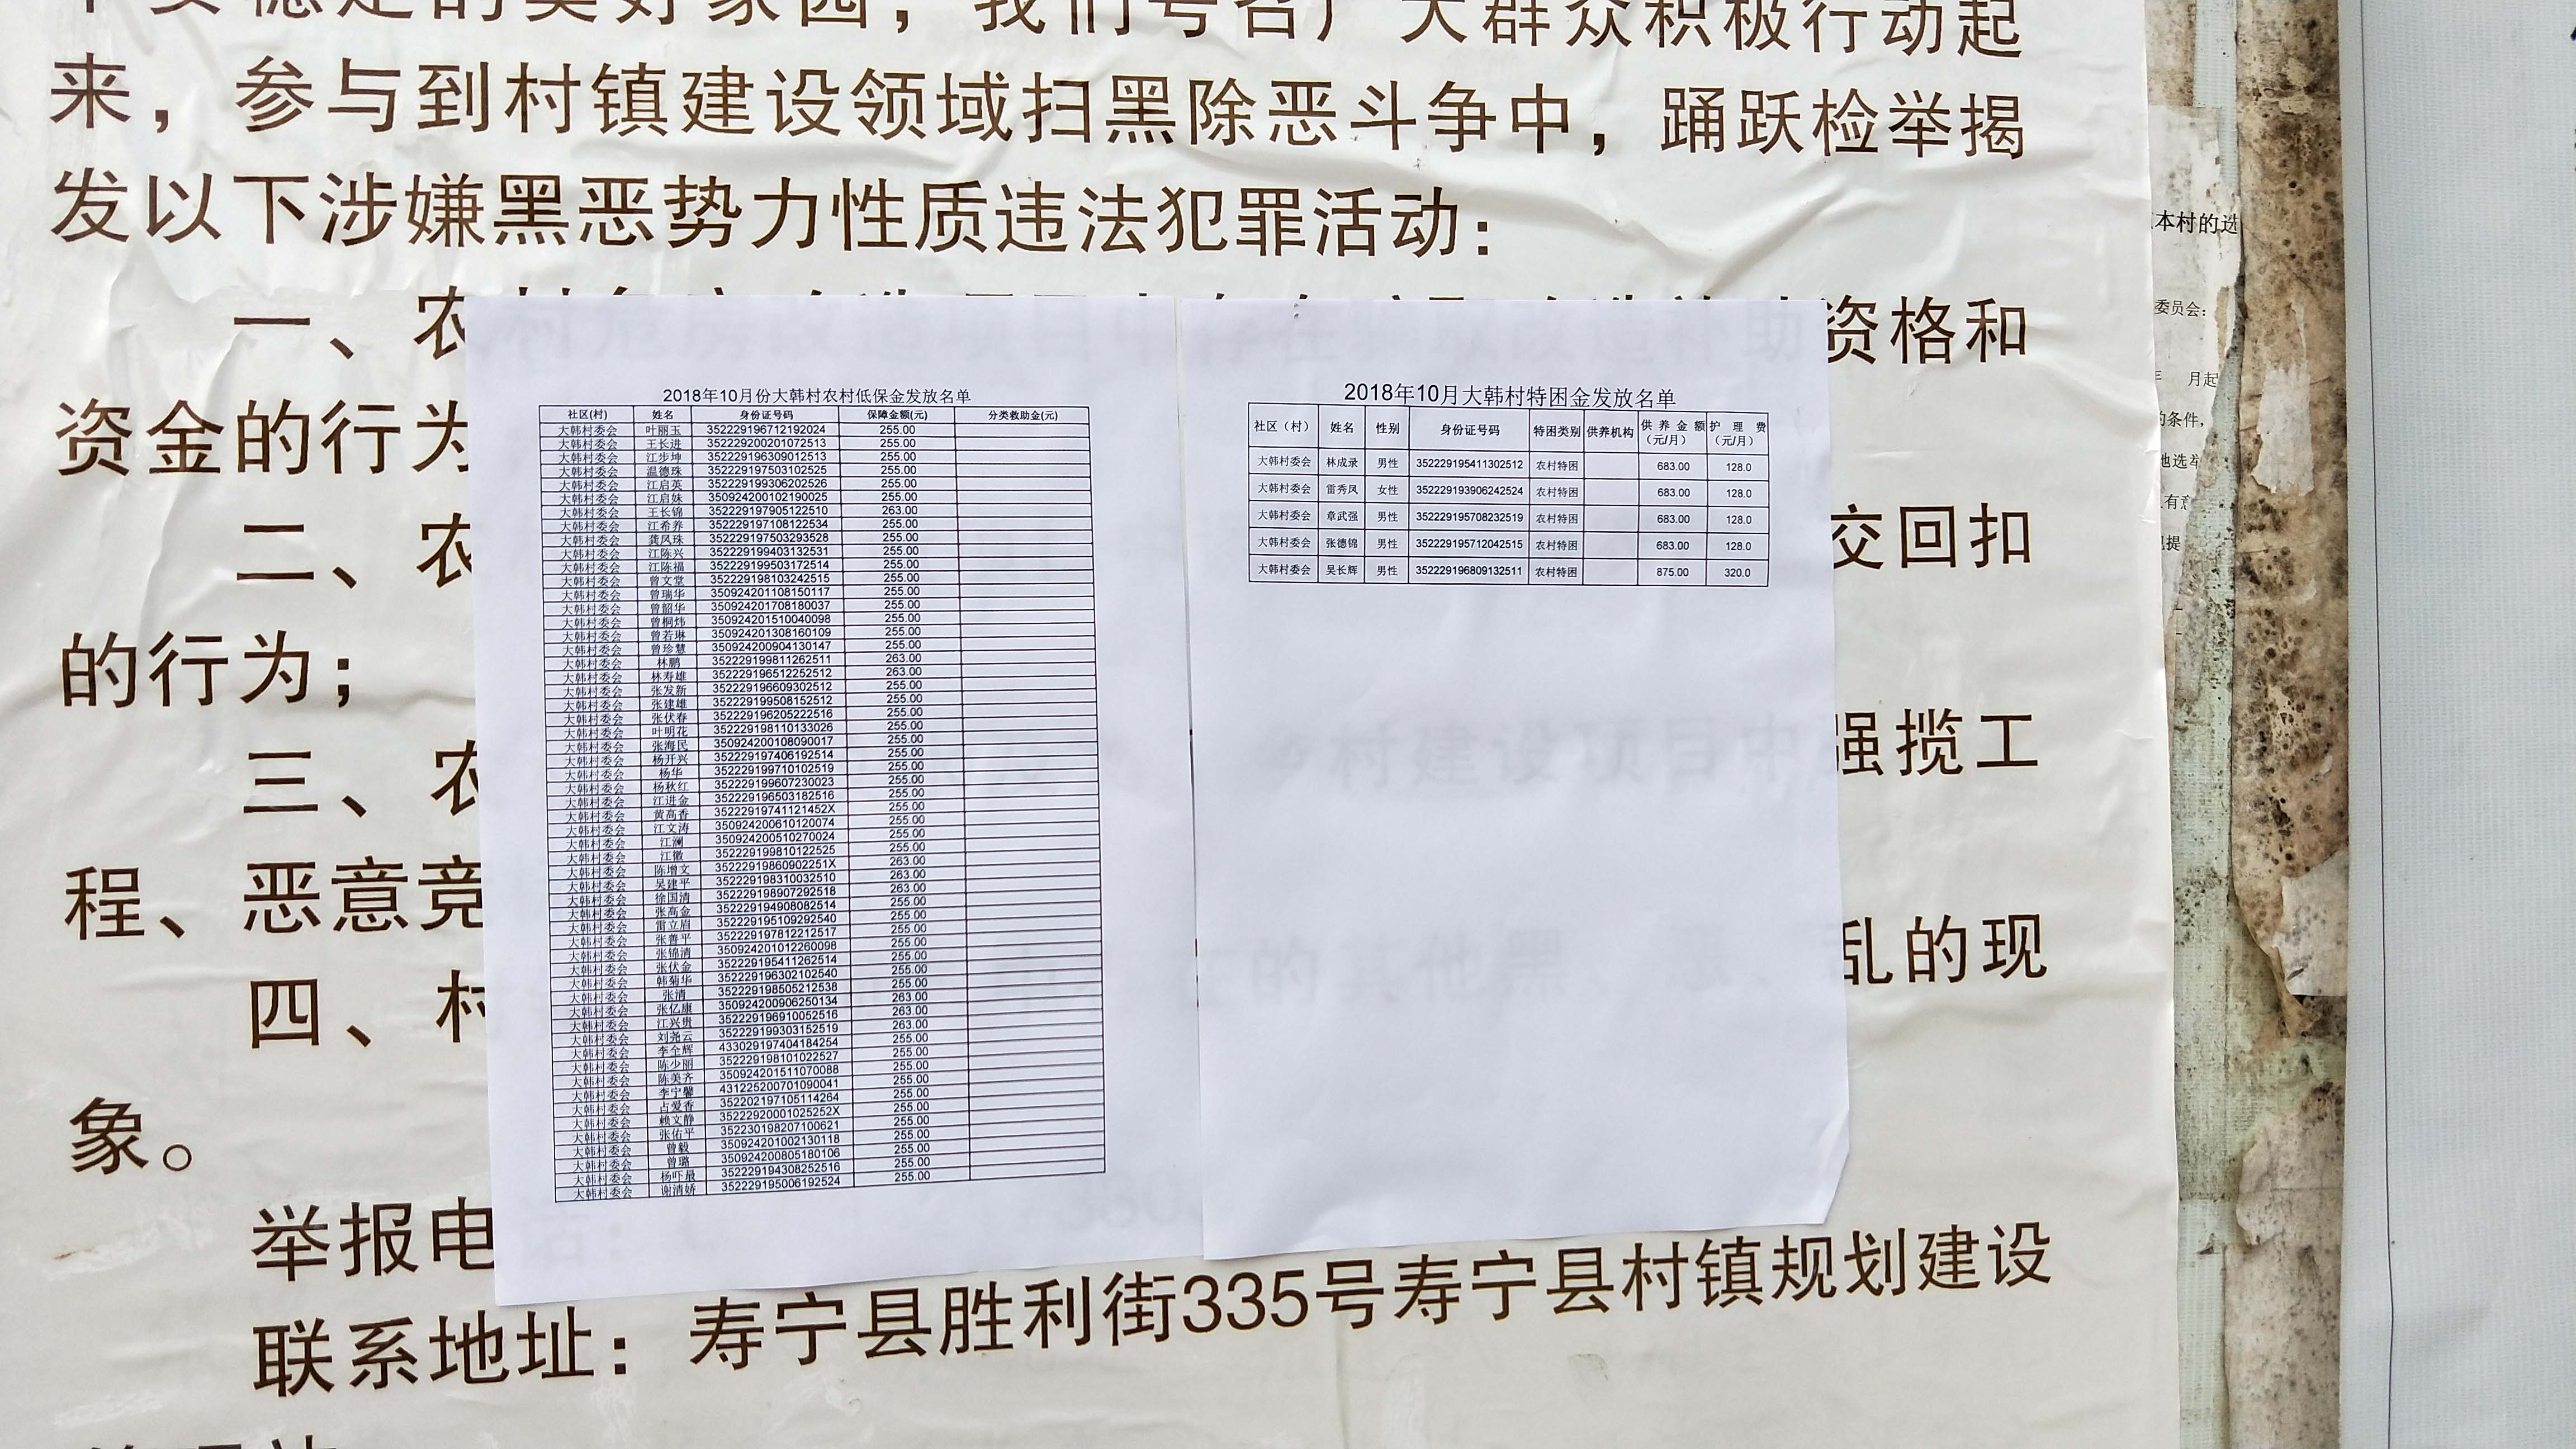 平安稳定的美好家园，我们号召广大群众积极行动起
来，参与到村镇建设领域扫黑除恶斗争中，踊跃检举揭
发以下涉嫌黑恶势力性质违法犯罪活动：
一、农 资格和
资金的行为
二、农 交回扣
的行为；
三、农 强揽工
程、恶意竞
四、村 乱的现
象。
举报电
联系地址：寿宁县胜利街335号寿宁县村镇规划建设
2018年10月份大韩村农村低保金发放名单
社区(村) 姓名 身份证号码 保障金额(元) 分类救助金(元)
大韩村委会 叶丽玉 352229196712192024 255.00
大韩村委会 王长进 352229200201072513 255.00
大韩村委会 江步坤 352229196309012513 255.00
大韩村委会 温德珠 352229197503102525 255.00
大韩村委会 江启英 352229199306202526 255.00
大韩村委会 江启妹 350924200102190025 255.00
大韩村委会 王长锦 352229197905122510 263.00
大韩村委会 江希养 352229197108122534 255.00
大韩村委会 龚凤珠 352229197503293528 255.00
大韩村委会 江陈兴 352229199403132531 255.00
大韩村委会 江陈福 352229199503172514 255.00
大韩村委会 曾文堂 352229198103242515 255.00
大韩村委会 曾瑞华 350924201108150117 255.00
大韩村委会 曾韶华 350924201708180037 255.00
大韩村委会 曾桐炜 350924201510040098 255.00
大韩村委会 曾若琳 350924201308160109 255.00
大韩村委会 曾珍慧 350924200904130147 255.00
大韩村委会 林鹏 352229199811262511 263.00
大韩村委会 林寿雄 352229196512252512 263.00
大韩村委会 张发新 352229196609302512 255.00
大韩村委会 张建雄 352229199508152512 255.00
大韩村委会 张伏春 352229196205222516 255.00
大韩村委会 叶明花 352229198110133026 255.00
大韩村委会 张海民 350924200108090017 255.00
大韩村委会 杨开兴 352229197406192514 255.00
大韩村委会 杨华 352229199710102519 255.00
大韩村委会 杨秋红 352229199607230023 255.00
大韩村委会 江进金 352229196503182516 255.00
大韩村委会 黄高香 35222919741121452X 255.00
大韩村委会 江文涛 350924200610120074 255.00
大韩村委会 江澜 350924200510270024 255.00
大韩村委会 江徽 352229199810122525 255.00
大韩村委会 陈增文 35222919860902251X 263.00
大韩村委会 吴建平 352229198310032510 263.00
大韩村委会 徐国清 352229198907292518 263.00
大韩村委会 张高金 352229194908082514 255.00
大韩村委会 雷立眉 352229195109292540 255.00
大韩村委会 张善平 352229197812212517 255.00
大韩村委会 张锦清 350924201012260098 255.00
大韩村委会 张伏金 352229195411262514 255.00
大韩村委会 韩菊华 352229196302102540 255.00
大韩村委会 张清 352229198505212538 255.00
大韩村委会 张亿康 350924200906250134 263.00
大韩村委会 江兴贵 352229196910052516 255.00
大韩村委会 刘尧云 352229199303152519 263.00
大韩村委会 李全辉 433029197404184254 255.00
大韩村委会 陈少丽 352229198101022527 255.00
大韩村委会 陈美齐 350924201511070088 255.00
大韩村委会 李宁馨 431225200701090041 255.00
大韩村委会 占爱香 352202197105114264 255.00
大韩村委会 赖文静 35222920001025252X 255.00
大韩村委会 张佑平 352230198207100621 255.00
大韩村委会 曾毅 350924201002130118 255.00
大韩村委会 曾璐 350924200805180106 255.00
大韩村委会 杨吓最 352229194308252516 255.00
大韩村委会 谢清娇 352229195006192524 255.00
2018年10月大韩村特困金发放名单
社区（村） 姓名 性别 身份证号码 特困类别 供养机构 供养金额（元/月） 护理费（元/月）
大韩村委会 林成录 男性 352229195411302512 农村特困 683.00 128.0
大韩村委会 雷秀凤 女性 352229193906242524 农村特困 683.00 128.0
大韩村委会 章武强 男性 352229195708232519 农村特困 683.00 128.0
大韩村委会 张德锦 男性 352229195712042515 农村特困 683.00 128.0
大韩村委会 吴长辉 男性 352229196809132511 农村特困 875.00 320.0
本村的选
委员会：
月起
的条件，